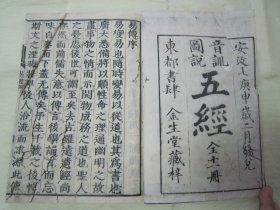 安政七庚申歳二月發兌
音訓
圖說
五經
全十一冊
東都書肆 金生堂藏梓
易傳序
易變易也隨時變易以從道也其爲書也
廣大悉備將以順性命之理通幽明之故
盡事物之情而示開物成務之道也聖人
之憂患後世可謂至矣去古雖遠遺經尚
存然而前儒失意以傳言後學誦言而忘
味自秦而下蓋無傳矣予生千載之後悼
斯文之湮晦將俾後人沿流而求源此傳